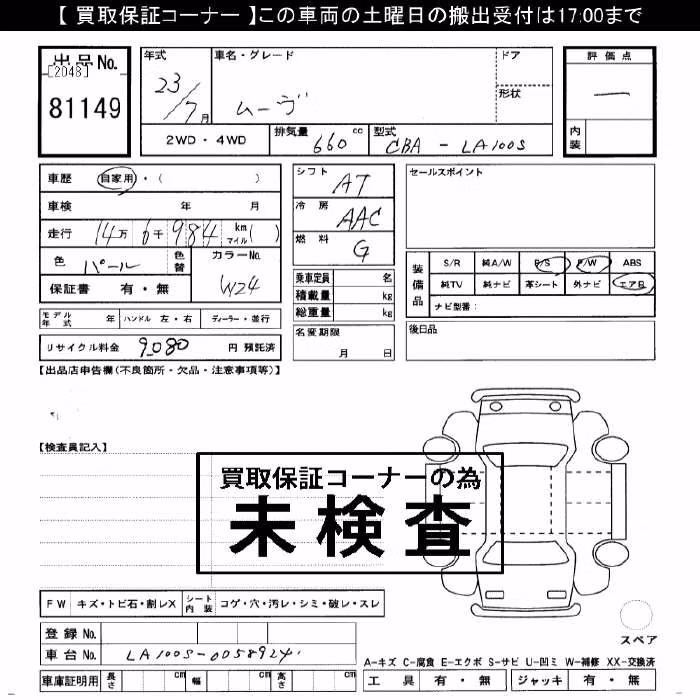 【 買取保証コーナー 】この車両の土曜日の搬出受付は17:00まで
出品No.
[2048]
81149
年式
23/7月
車名・グレード
ムーヴ
ドア
形状
2WD・4WD
排気量
660 cc
型式
CBA - LA100S
評価点
—
内装
車歴 自家用・( )
車検 年 月
走行 14万6千984 km マイル( )
色 パール 色替
カラーNo.
W24
保証書 有・無
モデル年式 年 ハンドル 左・右 ディーラー・並行
リサイクル料金 9,080 円 預託済
シフト AT
冷房 AAC
燃料 G
乗車定員 名
積載量 kg
総重量 kg
名変期限
月 日
セールスポイント
装備品
S/R 純A/W P/S P/W ABS
純TV 純ナビ 革シート 外ナビ エアB
ナビ型番:
後日品
【出品店申告欄(不良箇所・欠品・注意事項等)】
【検査員記入】
買取保証コーナーの為
未検査
FW キズ・トビ石・割レX シート内装 コゲ・穴・汚レ・シミ・破レ・スレ
登録No.
車台No. LA100S-0058924
車庫証明用 長さ cm 幅 cm 高さ cm
スペア
A-キズ C-腐食 E-エクボ S-サビ U-凹ミ W-補修 XX-交換済
工具 有・無 ジャッキ 有・無